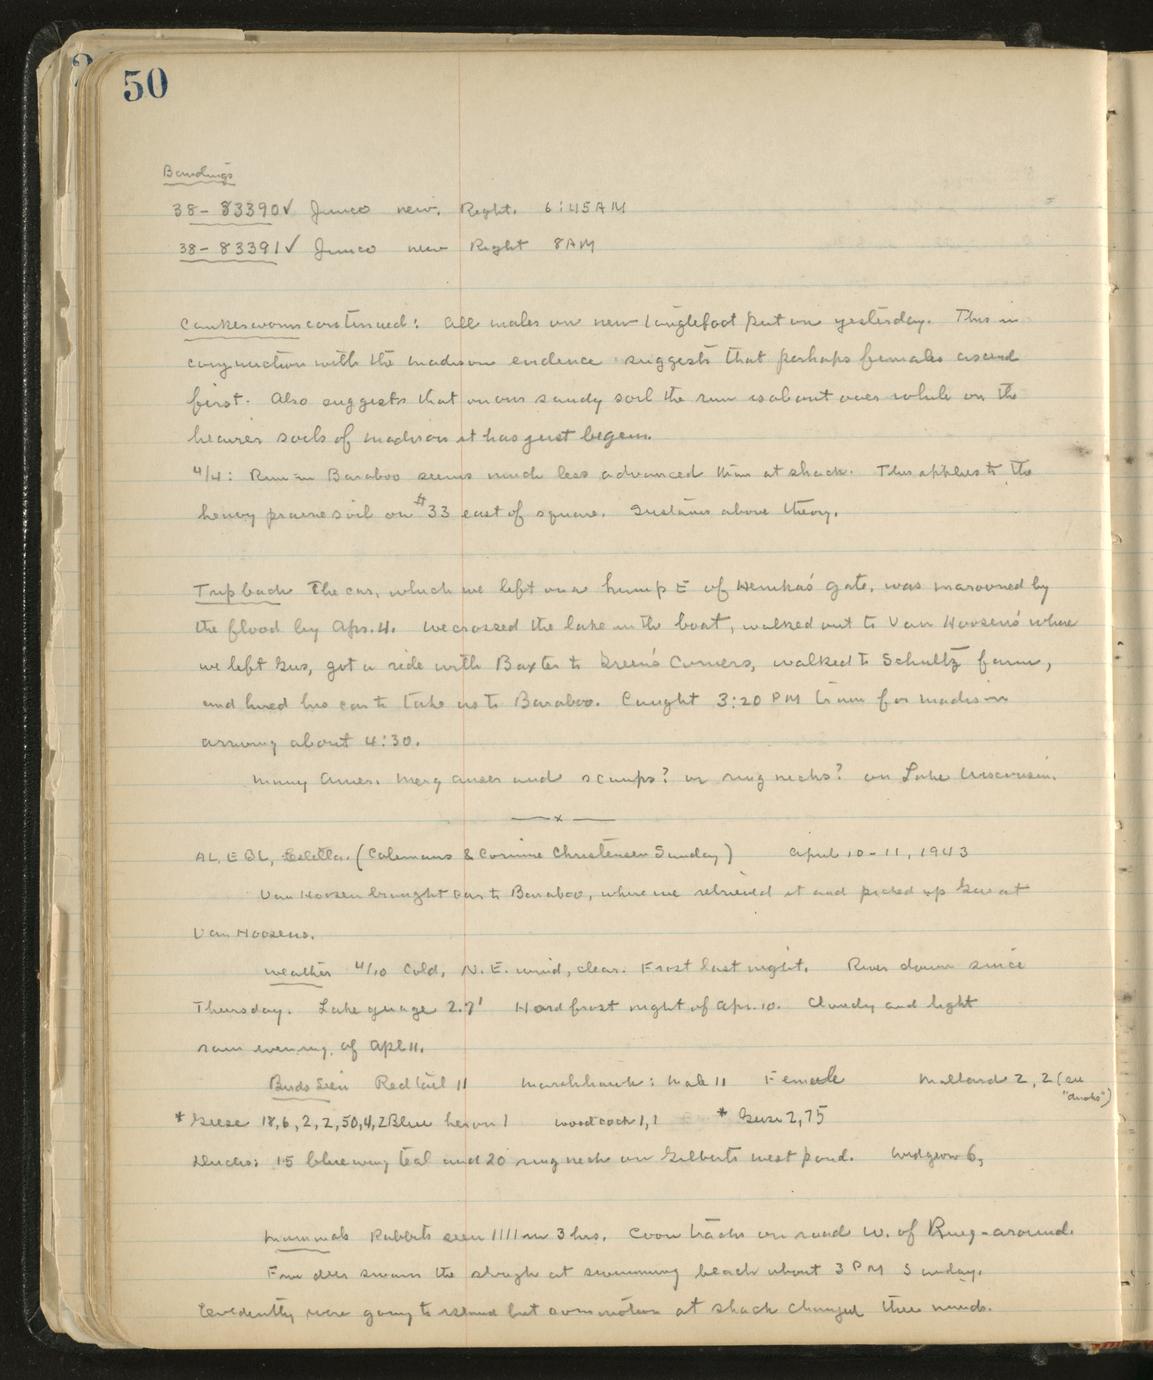 50
Bandings
38-83390✓ Junco new. Right. 6:45AM
38-83391✓ Junco new Right 8AM
Cankerworms continued: All males on new Tanglefoot put on yesterday. This in
conjunction with the Madison evidence suggests that perhaps females ascend
first. Also suggests that on our sandy soil the run is about over while on the
heavier soils of Madison it has just begun.
4/4: Run in Baraboo seems much less advanced than at shack. This applies to the
heavy prairie soil on #33 east of square. Sustains above theory.
Trip back The car, which we left on a hump E of Wenkas' gate, was marooned by
the flood by Apr. 4. We crossed the lake in the boat, walked out to Van Hoosen's where
we left Gus, got a ride with Baxter to Green's Corners, walked to Schultz farm,
and hired his car to take us to Baraboo. Caught 3:20 PM train for Madison
arriving about 4:30.
Many Amer. Merganser and scaups? or ringnecks? on Lake Wisconsin.
—x—
AL, EBL, Estella. (Colemans & Corinne Christensen Sunday) April 10-11, 1943
Van Hoosen brought car to Baraboo, where we retrieved it and picked up Gus at
Van Hoosens.
Weather 4/10 Cold, N.E. wind, clear. Frost last night. River down since
Thursday. Lake guage 2.7' Hard frost night of Apr. 10. Cloudy and light
rain evening of Apl 11.
Birds Seen Redtail 11 Marshhawk: Male 11 Female Mallard 2, 2 (see
"ducks")
* Geese 18, 6, 2, 2, 50, 4, 2 Blue heron 1 woodcock 1, 1 * Geese 2, 75
Ducks: 15 bluewing teal and 20 ringneck on Gilberts west pond. Widgeon 6,
Mammals Rabbits seen 1111 in 3 hrs. Coon tracks on road W. of Ring-around.
Four deer swam the slough at swimming beach about 3 PM Sunday.
Evidently were going to island but commotion at shack changed their minds.